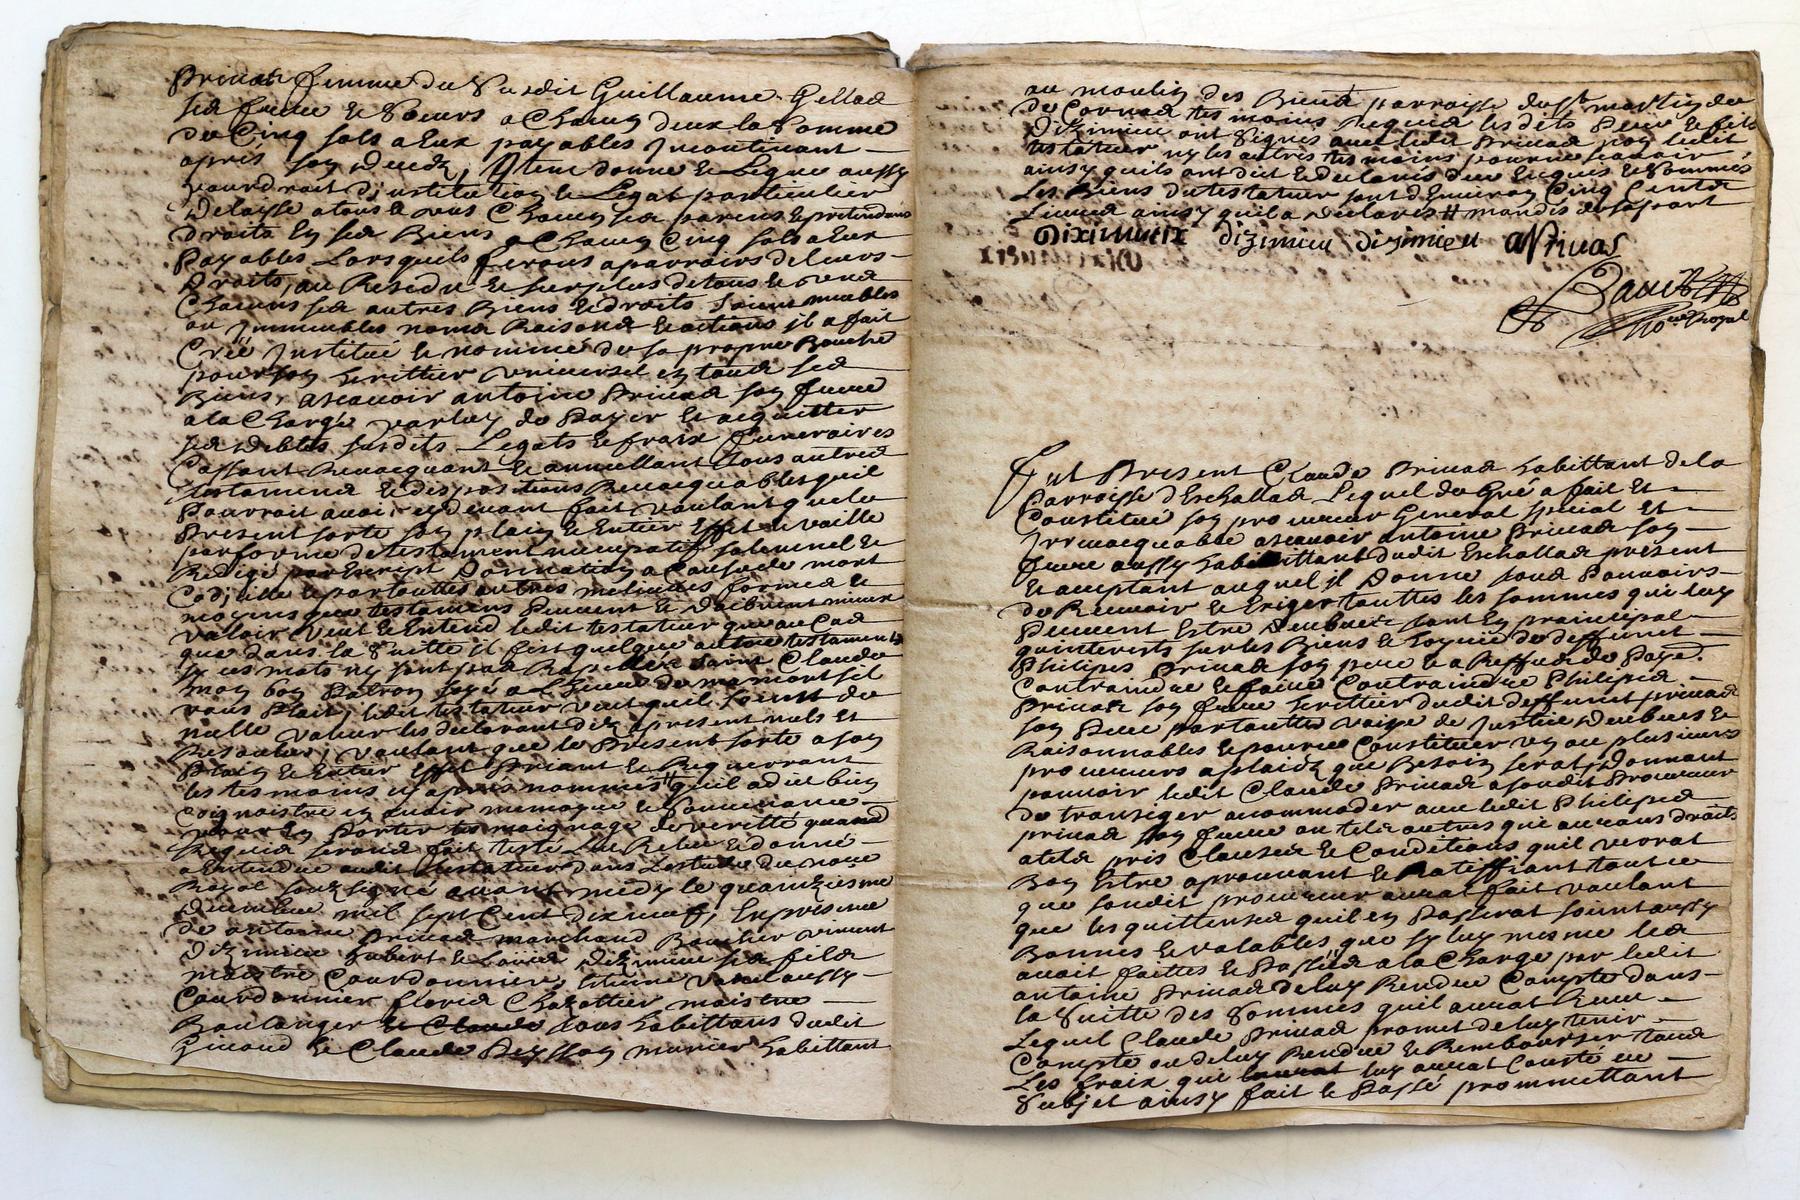 Privat femme du Susdit Guillaume Gellas
ses frere et Soeurs a Chacun deux la Somme
de Cinq sols a Eux payables Incontinant
apres son deceds, Item donne et Legue aussy
pour droit d'institution et Legat particulier
Delaisse a tous et vus Chacun ses parens et pretendans
droits En ses Biens a Chacun Cinq sols a Eux
Payables Lorsquils feront aparroirs de leurs
Droits, au Residu et surplus de tous et vus
Chacuns ses autres Biens et droits soient meubles
ou Immeubles noms Raisons et actions il a fait
Créé Institué et nommé de sa propre Bouche
pour son heritier vniversel en tous ses
Biens, ascauoir antoine Privas son frere
a la Charge par luy de Payer et acquitter
ses debtes susdits Legats et fraix funeraires
Cassant Reuocquant et annullant tous autres
testamens et dispositions Reuocquables quil
Pourroit auoir cy deuant fait voulant que le
Present sorte son plain et Entier Effet et vaille
par forme de testament nuncupatif solemnel et
Redigé par Escript donnation a Cause de mort
Codicille et par touttes autres meilleures formes et
moyens que testamens Peuuent et doibuent mieux
valoir veut et Entend ledit testateur que au Cas
que dans la Suitte il fest quelque autre testament
sy ces mots ny sont pas Rapellez saint Claude
mon bon Patron soyé a Lheure de ma mort sil
vous Plait, ledit testateur veut quil soient de
nulle valeur les declarant dez apresent nuls et
Resoulus, voulant que le Present sorte a son
Plain et Entier Effet Priant et Requerrant
les tesmoins cy apres nommés # quil a dit bien
Coignoistre en auoir memoyre et Souuenance
pour En Porter tesmoignage de verité quand
Requis seront fait testé Leu Releu et donné
a Entendre audit testateur dans Lestude du nore
Royal souzsigné auant midy le quainziesme
decembre mil sept Cent dix neuf, En presence
de antoine Privas marchand Boucher vincent
Dizimieu hubert et Louis Dizimieu ses fils
maistre Courdonnier, Etiene vasel aussy
Courdonnier floris Chazottier maistre
Boulanger et Claude tous habittans dudit
Giuord et Claude Peysson munier habittant
au moulin des Rieux parroisse de st martin de
de Cornas tesmoins Requis lesdits Pere et fils
Dizimieu ont Signés auec ledit Privas non ledit
testateur ny les autres tesmoins pour ne scauoir
ainsy quils ont dit et declarés de ce Enquis et Sommés
Les Biens du testateur sont d'Enuiron Cinq Cents
Liures ainsy quil a declarés # mandés de sa part
Diximieux dizimieu dizimieu APriuas
nore Royal
Fut Present Claude Privas habittant de la
Parroisse d'Eschallas Lequel de Gré a fait et
Constitué son procureur General special et
Irreuocquable ascauoir antoine Privas son
frere aussy habittant dudit Eschallas present
et aceptant auquel il donne tous Pouuoirs
de Receuoir et Exiger touttes les sommes qui luy
Peuuent Estre deubues tant En prainsipal
quinterests sur les Biens et hoyrie de deffunct
Philipes Privas son pere et a Reffus de Paye.
Contraindre et faire Contraindre Philipes
Privas son frere heritier dudit deffunct privas
son Pere par touttes voyes de Justice deubues et
Raisonnables et pour ce Constituer vn ou plusieurs
procureurs a plaidz que Besoin serat, donnant
pouuoir ledit Claude Privas a sondit Procureur
de transiger acommoder auec ledit Philipes
privas son frere ou tels autres qui auront droits
a tels pris Clauses et Conditions quil verrat
Bon Estre aprouuant et Ratiffiant tout ce
que sondit procureur aurat fait voulant
que les quittenses quil en Passerat soient aussy
Bonnes et valables que sy luy mesme les
auoit faittes et Passées a la Charge par ledit
antoine Privas de luy Rendre Compte dans
la Suitte des Sommes quil aurat Receu
Lequel Claude Privas promet de luy tenir
Compte ou de luy Rendre et Rembourser tous
Les fraix qui luy aurat Cousté ce
Subjet ainsy fait et Passé prommettant